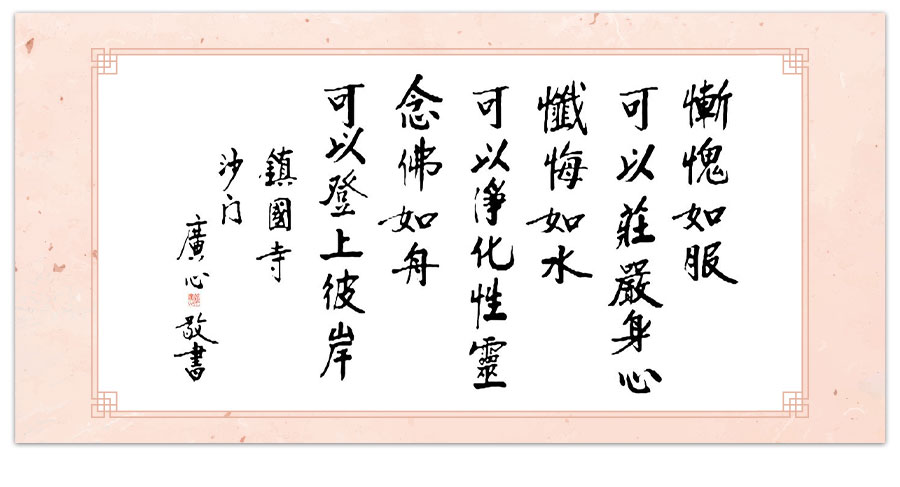 慚愧如服
可以莊嚴身心
懺悔如水
可以淨化性靈
念佛如舟
可以登上彼岸
鎮國寺
沙门
廣心敬書